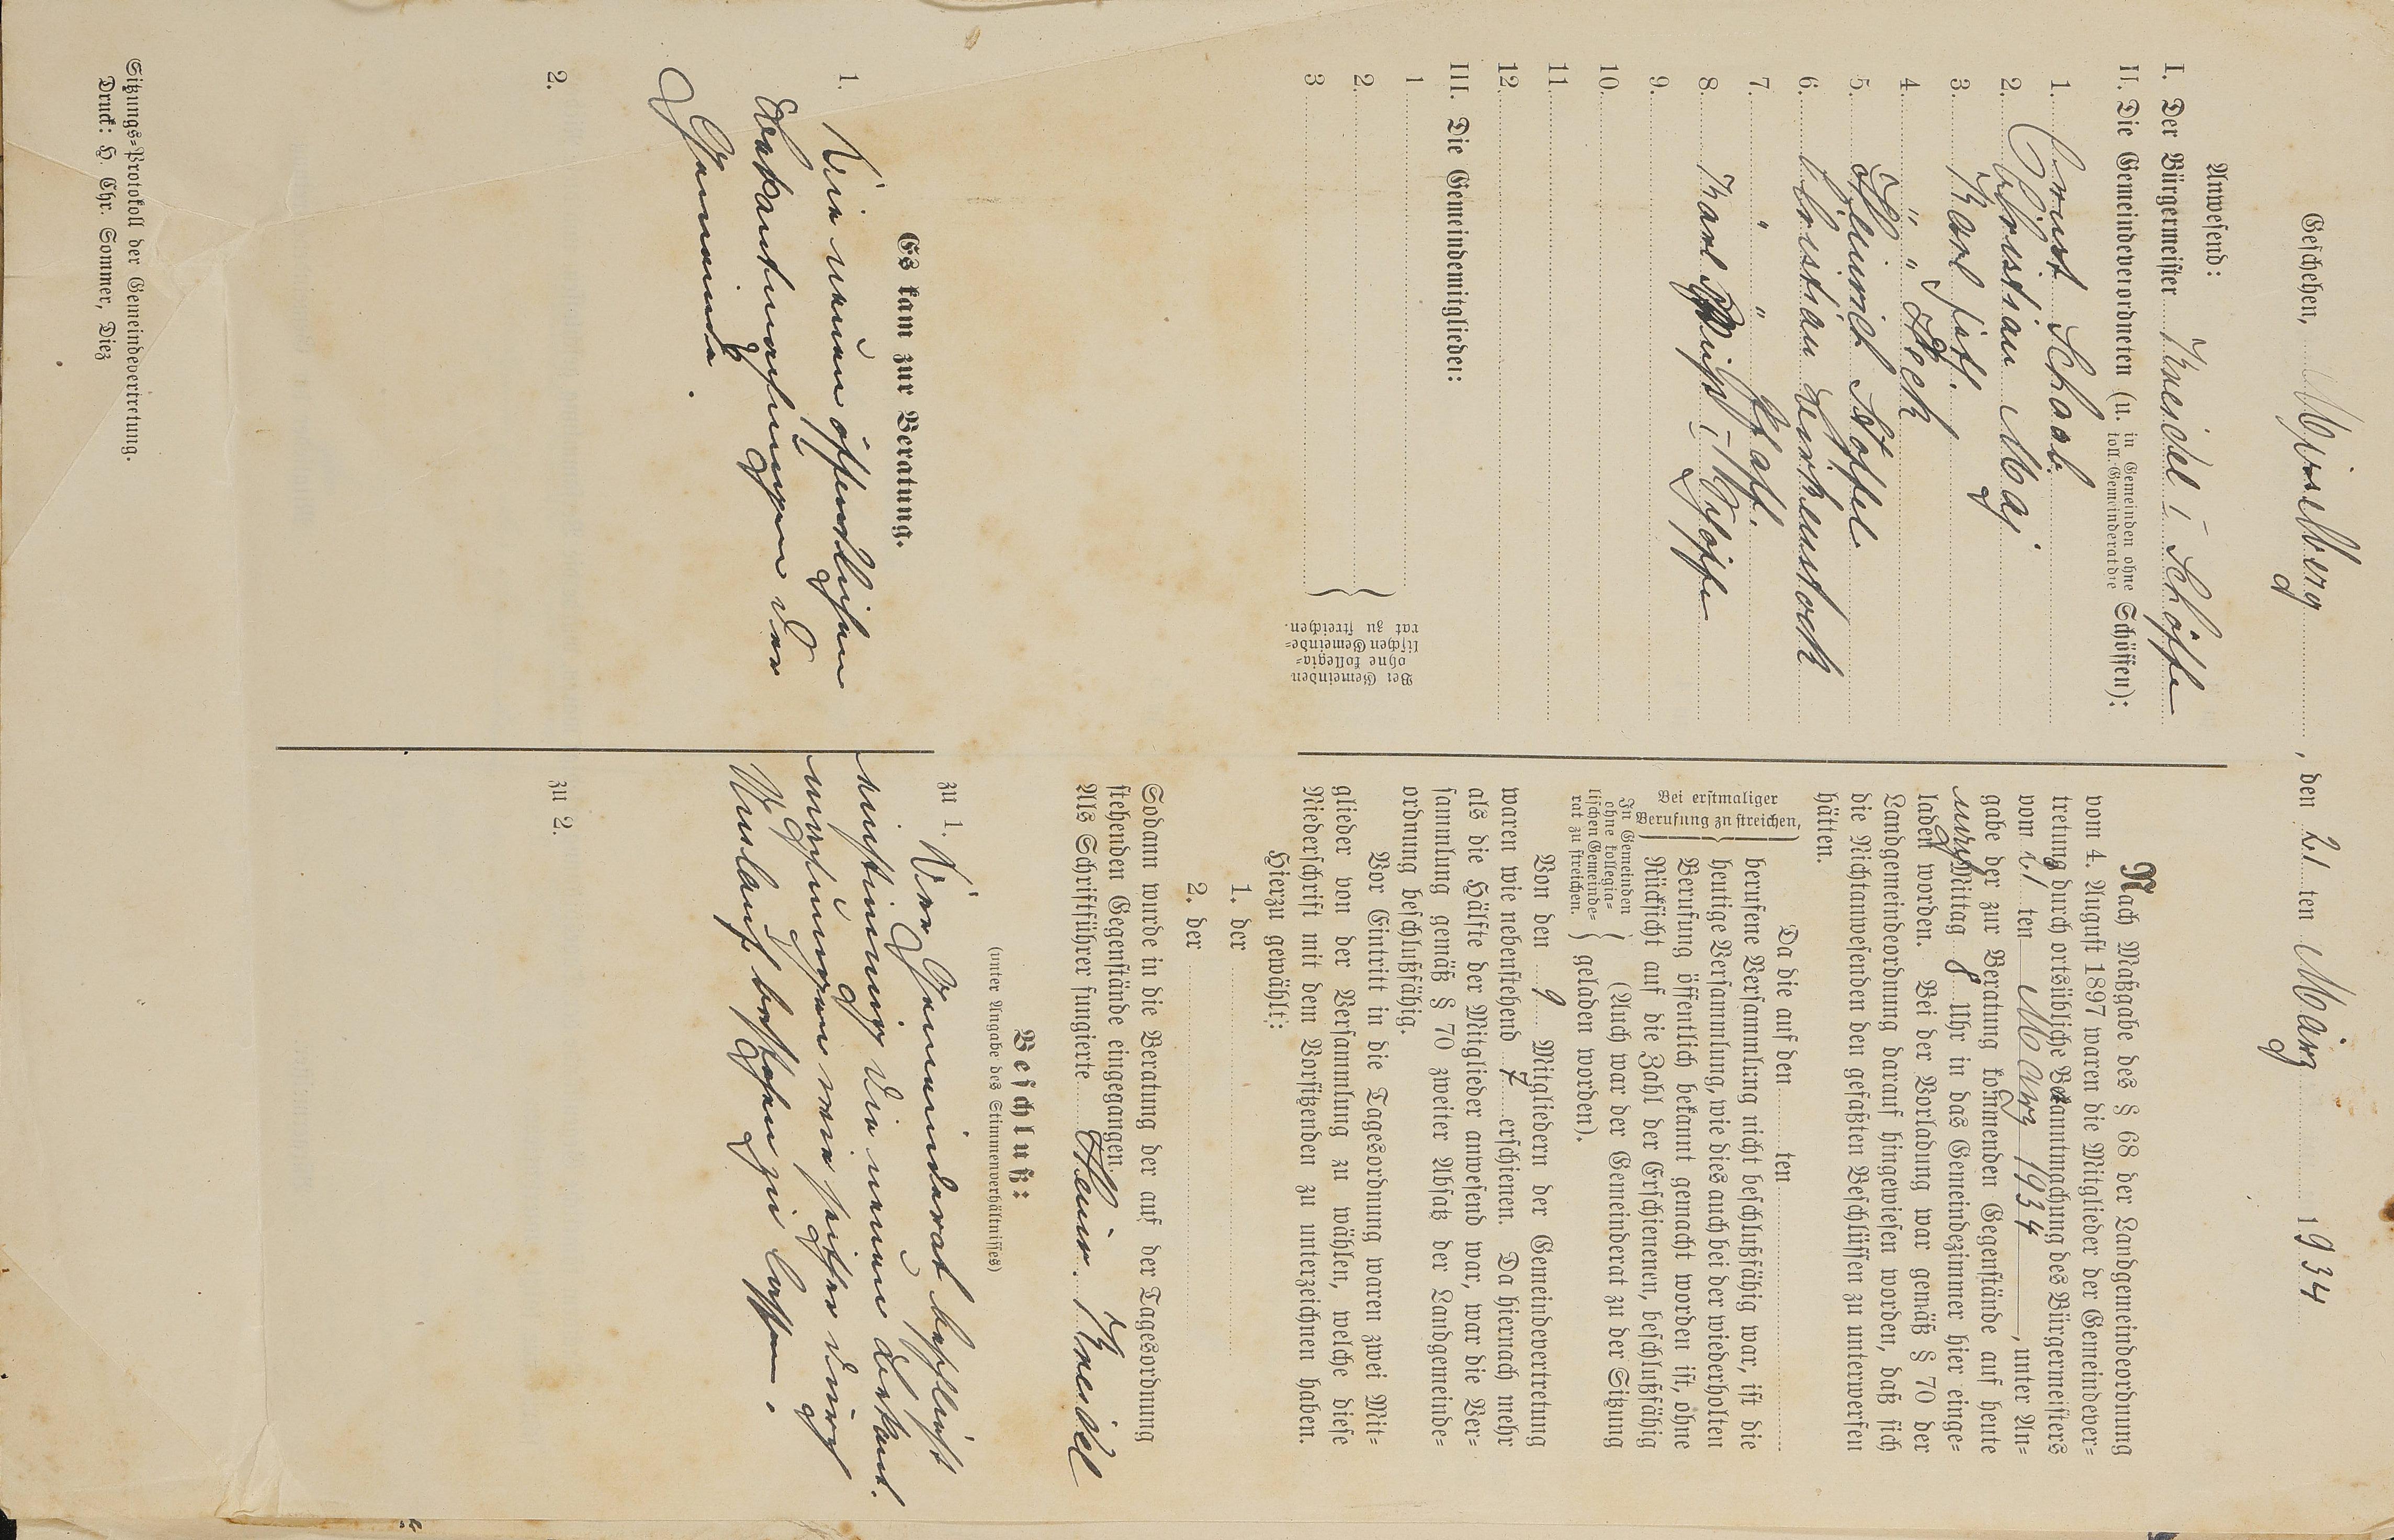 Geschehen, Misselberg, den 21 ten März 1934
Anwesend:
I. Der Bürgermeister Kreidel I Schöffe
II. Die Gemeindeverordneten (u. in Gemeinden ohne koll. Gemeinderat die Schöffen):
1. Ernst Schaab
2. Christian May
3. Karl
4. " " Beck
5. Heinrich Stoppel
6. Christian Lenkenstock
7. " " Pfaff.
8. Karl I Schöffe
9.
10.
11.
12.
III. Die Gemeindemitglieder:
1
2.
3
Bei Gemeinden
ohne kollegia-
lischen Gemeinde-
rat zu streichen.
Nach Maßgabe des § 68 der Landgemeindeordnung
vom 4. August 1897 waren die Mitglieder der Gemeindever-
tretung durch ortsübliche Bekanntmachung des Bürgermeisters
vom 21 ten März 1934, unter An-
gabe der zur Beratung kommenden Gegenstände auf heute
nachMittag 8 Uhr in das Gemeindezimmer hier einge-
laden worden. Bei der Vorladung war gemäß § 70 der
Landgemeindeordnung darauf hingewiesen worden, daß sich
die Nichtanwesenden den gefaßten Beschlüssen zu unterwerfen
hätten.
Bei erstmaliger
Berufung zu streichen,
Da die auf den ten
berufene Versammlung nicht beschlußfähig war, ist die
heutige Versammlung, wie dies auch bei der wiederholten
Berufung öffentlich bekannt gemacht worden ist, ohne
Rücksicht auf die Zahl der Erschienenen, beschlußfähig
In Gemeinden
ohne kollegia-
lischen Gemeinde-
rat zu streichen.
(Auch war der Gemeinderat zu der Sitzung
geladen worden).
Von den 9 Mitgliedern der Gemeindevertretung
waren wie nebenstehend 7 erschienen. Da hiernach mehr
als die Hälfte der Mitglieder anwesend war, war die Ver-
sammlung gemäß § 70 zweiter Absatz der Landgemeinde-
ordnung beschlußfähig.
Vor Eintritt in die Tagesordnung waren zwei Mit-
glieder von der Versammlung zu wählen, welche diese
Niederschrift mit dem Vorsitzenden zu unterzeichnen haben.
Hierzu gewählt:
1. der
2. der
Sodann wurde in die Beratung der auf der Tagesordnung
stehenden Gegenstände eingegangen.
Als Schriftführer fungierte Heinr. Kreidel
Es kam zur Beratung.
1. Die neuen öffentlichen
Bekantmachungen der
Gemeinde.
2.
Beschluß:
(unter Angabe des Stimmenverhältnisses)
zu 1. Der Gemeinderat beschließt
einstimmig die neuen Bekant-
machungen wie seither durch
Auslauf besorgen zu lassen.
zu 2.
Sitzungs-Protokoll der Gemeindevertretung.
Druck: H. Chr. Sommer, Diez